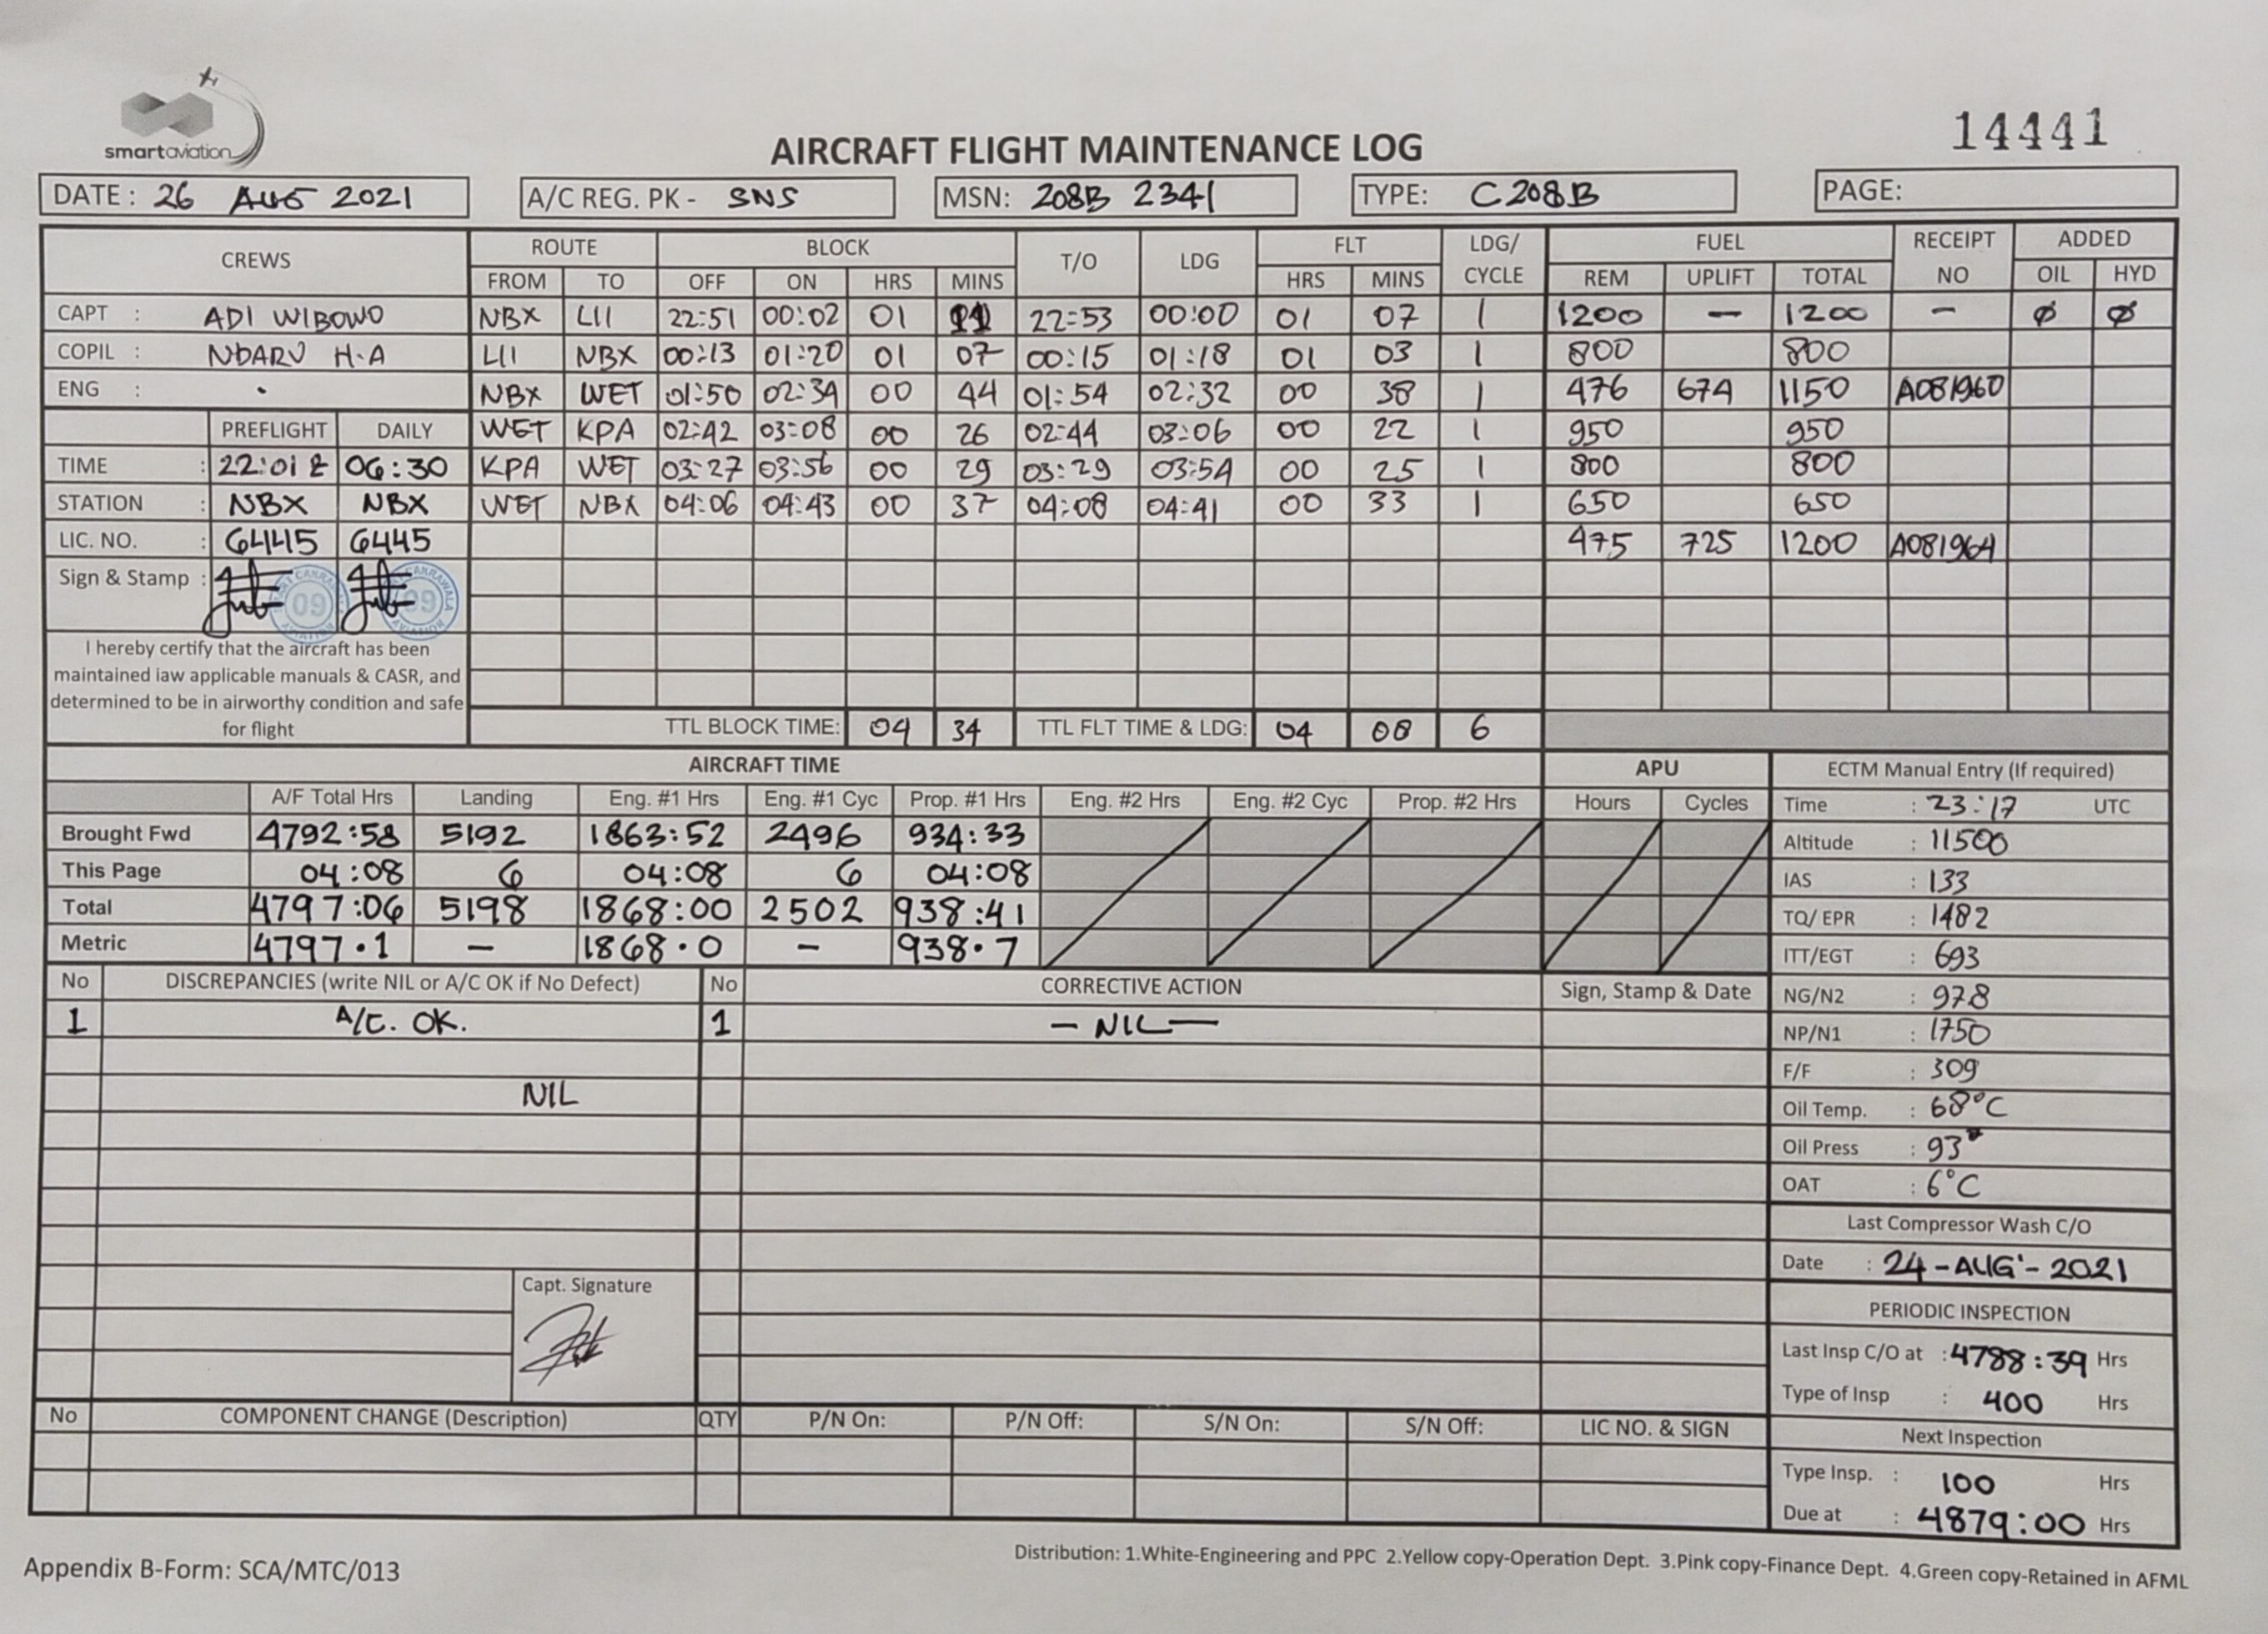 smartaviation
AIRCRAFT FLIGHT MAINTENANCE LOG
14441
DATE : 26 AUG 2021 A/C REG. PK - SNS MSN: 208B 2341 TYPE: C208B PAGE:
CREWS ROUTE BLOCK T/O LDG FLT LDG/ CYCLE FUEL RECEIPT NO ADDED
FROM TO OFF ON HRS MINS HRS MINS REM UPLIFT TOTAL OIL HYD
CAPT : ADI WIBOWO NBX LII 22:51 00:02 01 11 22:53 00:00 01 07 1 1200 – 1200 – Ø Ø
COPIL : NDARU H.A LII NBX 00:13 01:20 01 07 00:15 01:18 01 03 1 800 800
ENG : . NBX WET 01:50 02:34 00 44 01:54 02:32 00 38 1 476 674 1150 A081960
PREFLIGHT DAILY WET KPA 02:42 03:08 00 26 02:44 03:06 00 22 1 950 950
TIME : 22:01 & 06:30 KPA WET 03:27 03:56 00 29 03:29 03:54 00 25 1 800 800
STATION : NBX NBX WET NBX 04:06 04:43 00 37 04:08 04:41 00 33 1 650 650
LIC. NO. : 6445 6445 475 725 1200 A081964
Sign & Stamp : 09 09
I hereby certify that the aircraft has been
maintained iaw applicable manuals & CASR, and
determined to be in airworthy condition and safe
for flight
TTL BLOCK TIME: 04 34 TTL FLT TIME & LDG: 04 08 6
AIRCRAFT TIME APU ECTM Manual Entry (If required)
A/F Total Hrs Landing Eng. #1 Hrs Eng. #1 Cyc Prop. #1 Hrs Eng. #2 Hrs Eng. #2 Cyc Prop. #2 Hrs Hours Cycles Time : 23:17 UTC
Brought Fwd 4792:58 5192 1863:52 2496 934:33 Altitude : 11500
This Page 04:08 6 04:08 6 04:08 IAS : 133
Total 4797:06 5198 1868:00 2502 938:41 TQ/ EPR : 1482
Metric 4797.1 – 1868.0 – 938.7 ITT/EGT : 693
No DISCREPANCIES (write NIL or A/C OK if No Defect) No CORRECTIVE ACTION Sign, Stamp & Date NG/N2 : 978
1 A/C. OK. 1 – NIL – NP/N1 : 1750
F/F : 309
NIL
Oil Temp. : 68°C
Oil Press : 93
OAT : 6°C
Last Compressor Wash C/O
Date : 24-AUG'-2021
Capt. Signature
PERIODIC INSPECTION
Last Insp C/O at : 4788:39 Hrs
Type of Insp : 400 Hrs
No COMPONENT CHANGE (Description) QTY P/N On: P/N Off: S/N On: S/N Off: LIC NO. & SIGN
Next Inspection
Type Insp. : 100 Hrs
Due at : 4879:00 Hrs
Appendix B-Form: SCA/MTC/013
Distribution: 1.White-Engineering and PPC 2.Yellow copy-Operation Dept. 3.Pink copy-Finance Dept. 4.Green copy-Retained in AFML